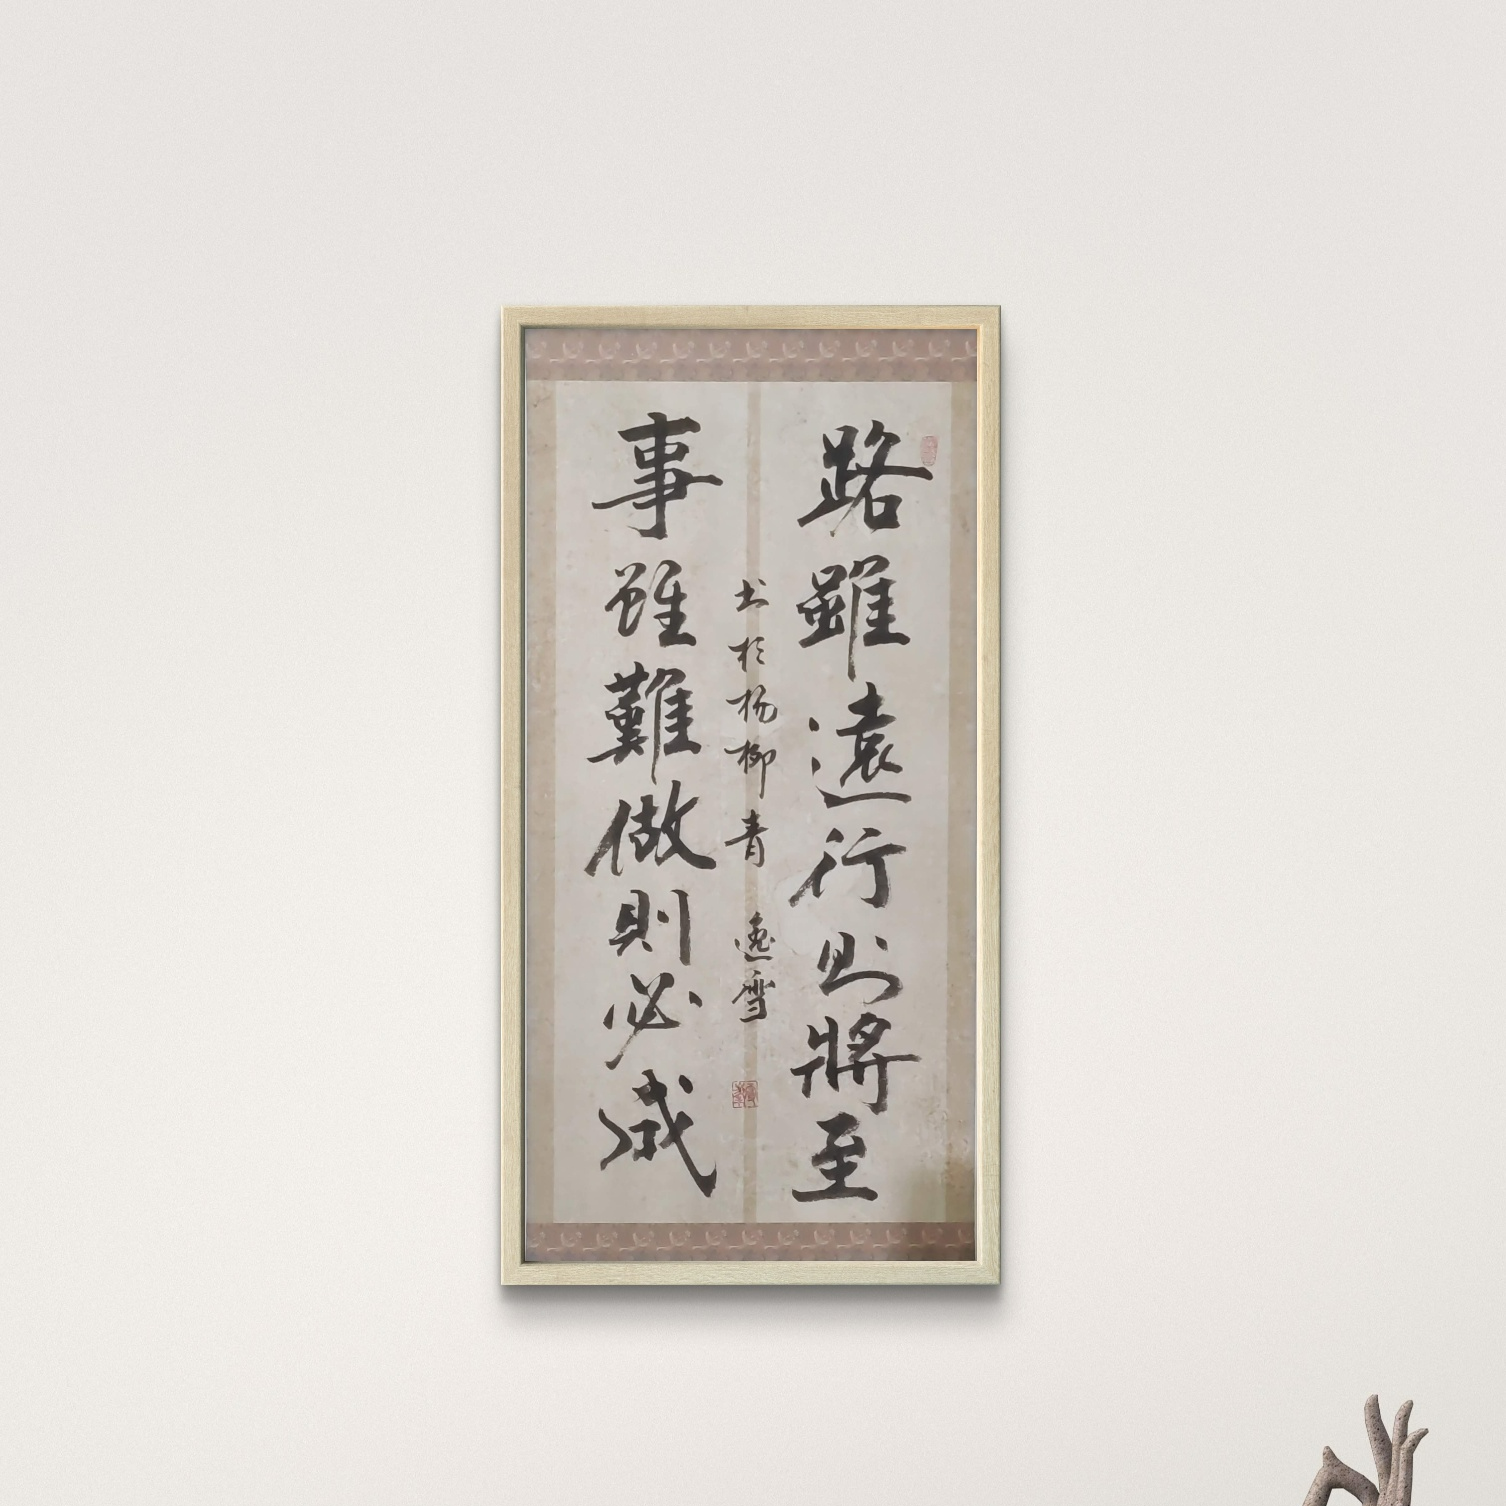 路雖遠行则將至
书於杨柳青 逸雪
事雖難做則必成